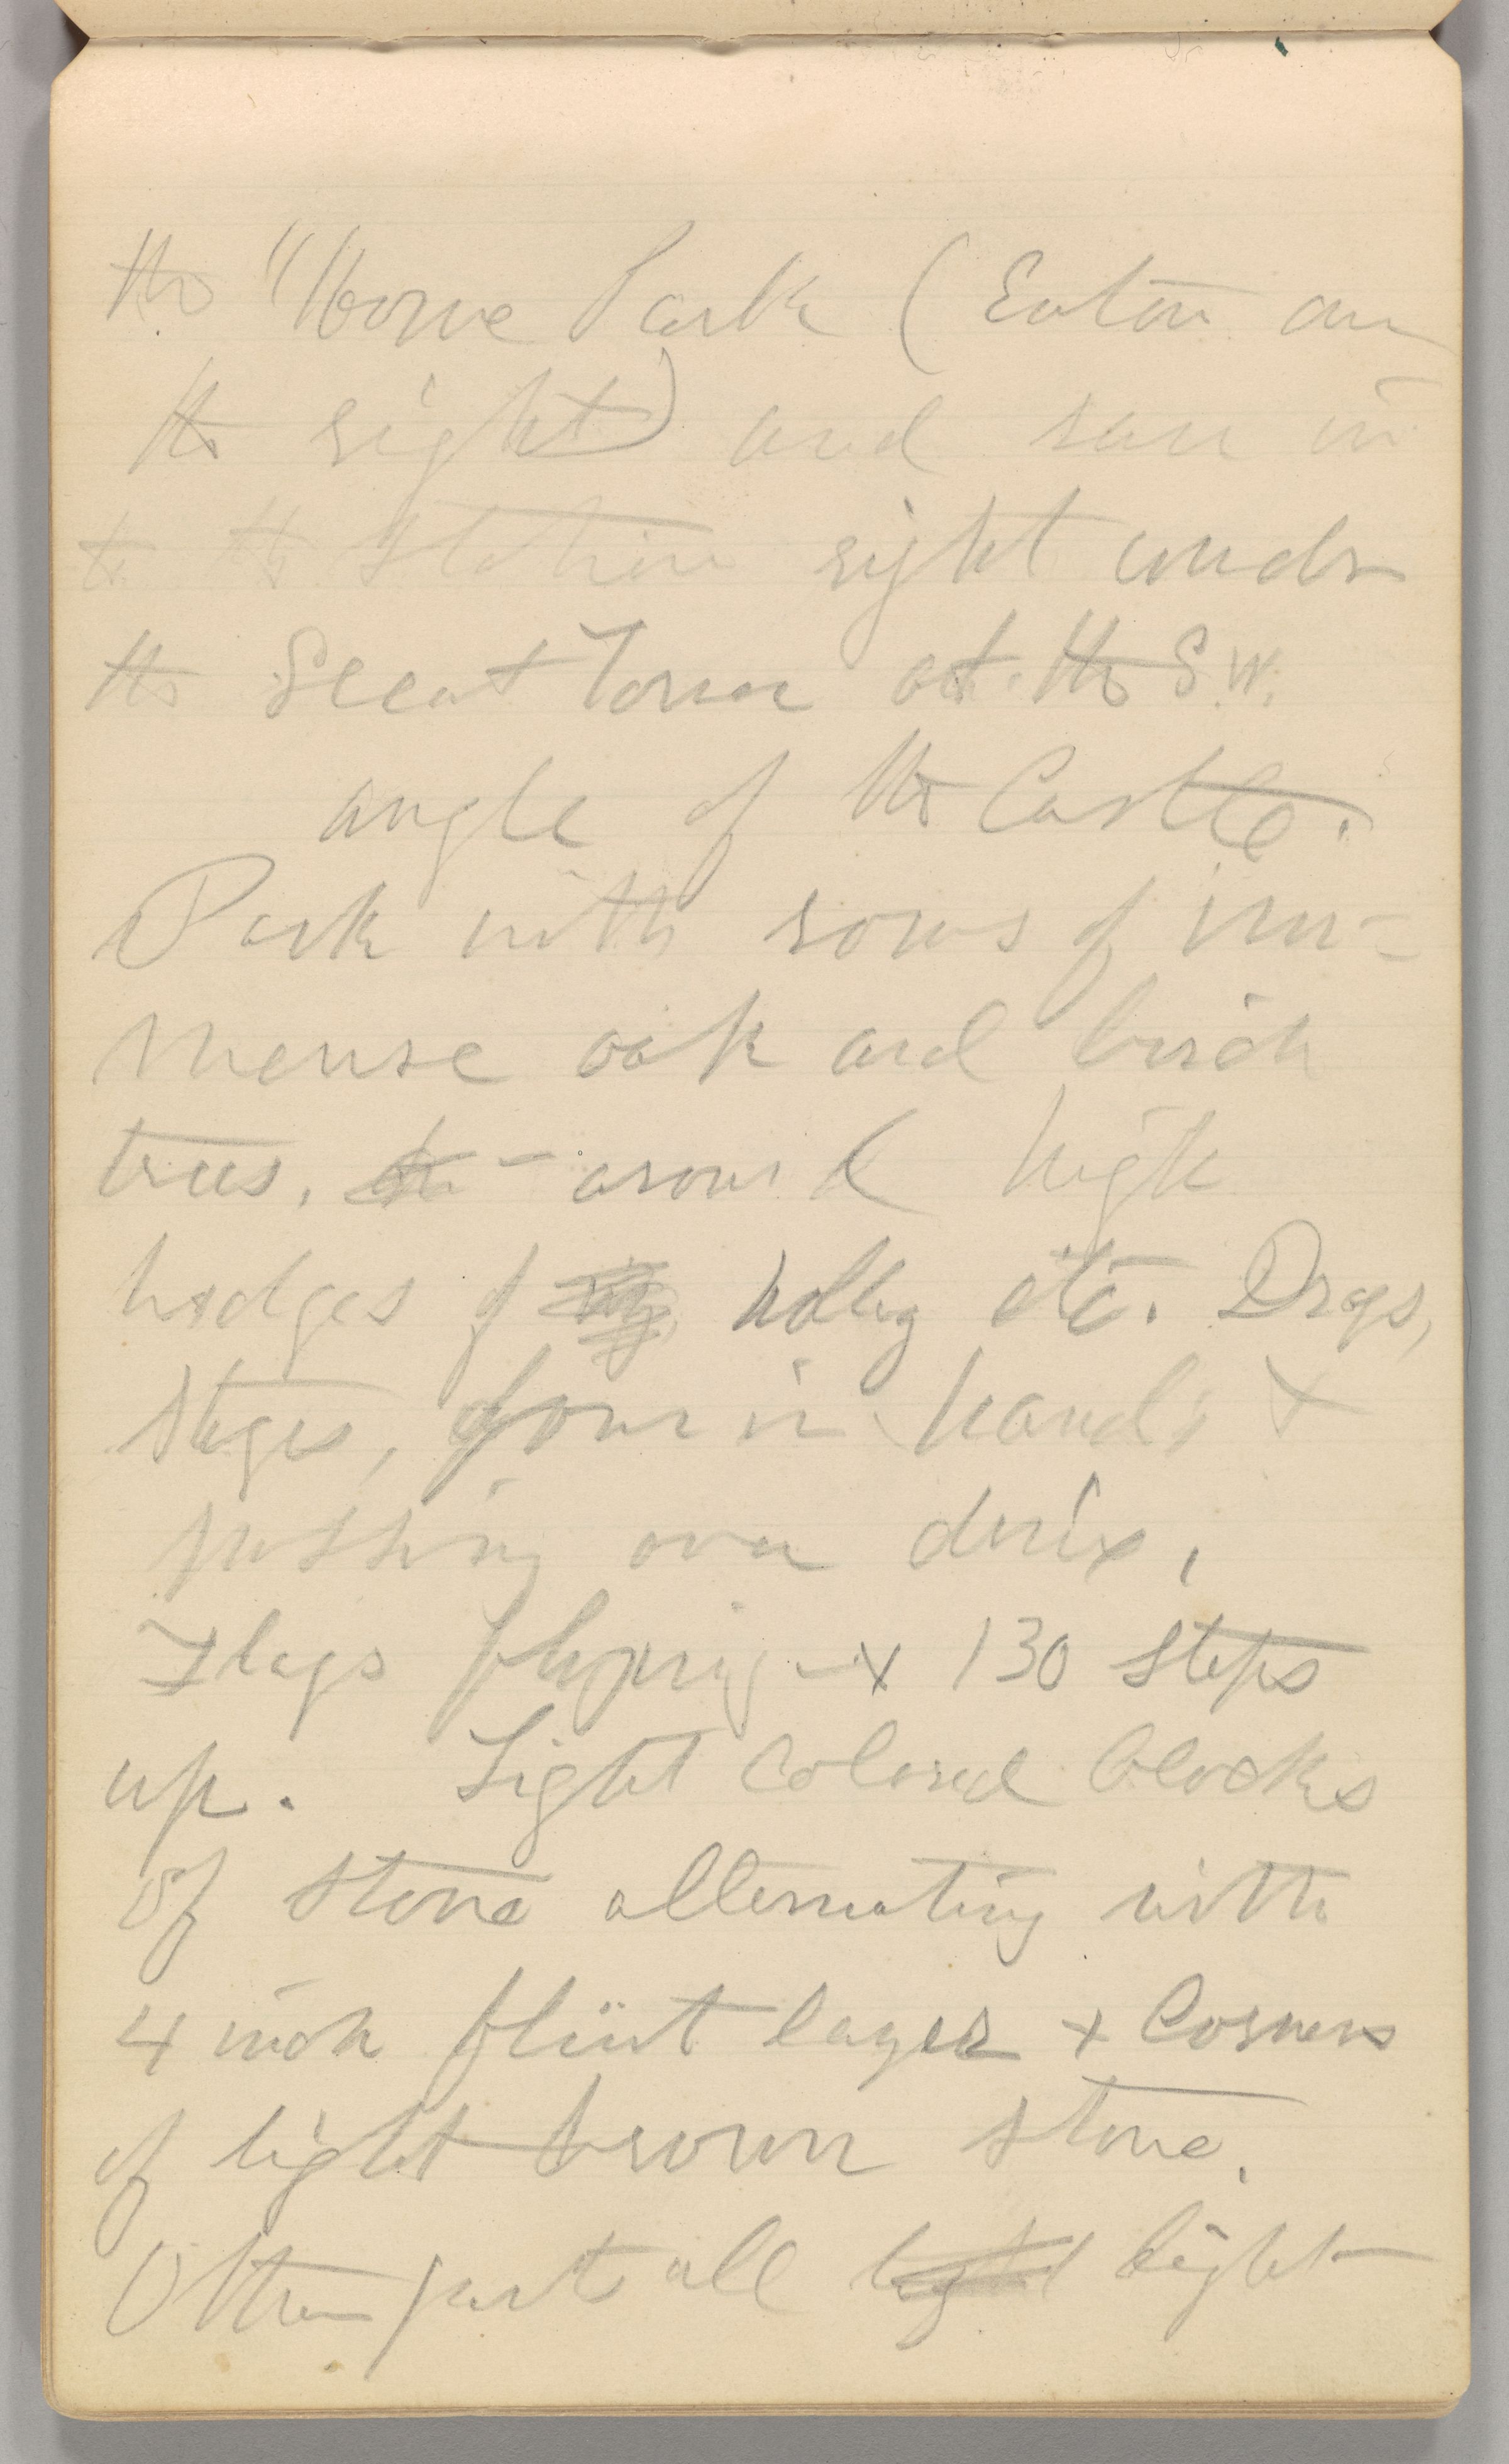 the "Home Park (Eaton on
the right) and ran in
to the station right under
the Great Tower at the S.W.
angle of the Castle.
Park with rows of im-
mense oak and birch
trees. - around high
hedges of holly etc. Drags,
stages, four in hands +
passing over drive,
Flags flying - + 130 steps
up. Light colored blocks
of stone alternating with
4 inch flint layer + corners
of light brown stone.
Other part all light light